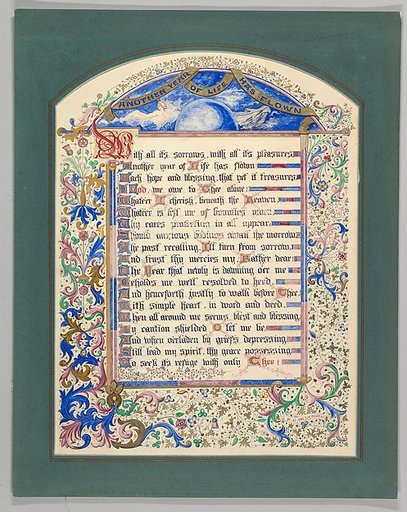 ANOTHER YEAR OF LIFE HAS FLOWN
With all its sorrows, with all its pleasures,
Another year of Life has flown
Each hope and blessing that yet it treasures
God, we owe to Thee alone:
Whate'er I cherish, beneath the Heaven,
Whate'er is left me of
Thy cares protection in all appear.
anxious the morrow
The past recalling, I'll turn from sorrow
And trust thy mercies my Father dear
The Year that newly is dawning o'er me
Beholds me well resolved to heed,
And henceforth justly to walk before Thee
With simple heart, in word and deed
Then all around me seems blest and blessing
By caution shielded O let me be
And when o'erladen by griefs depressing,
Still lead my spirit, thy grace possessing,
To seek its refuge with only Thee!